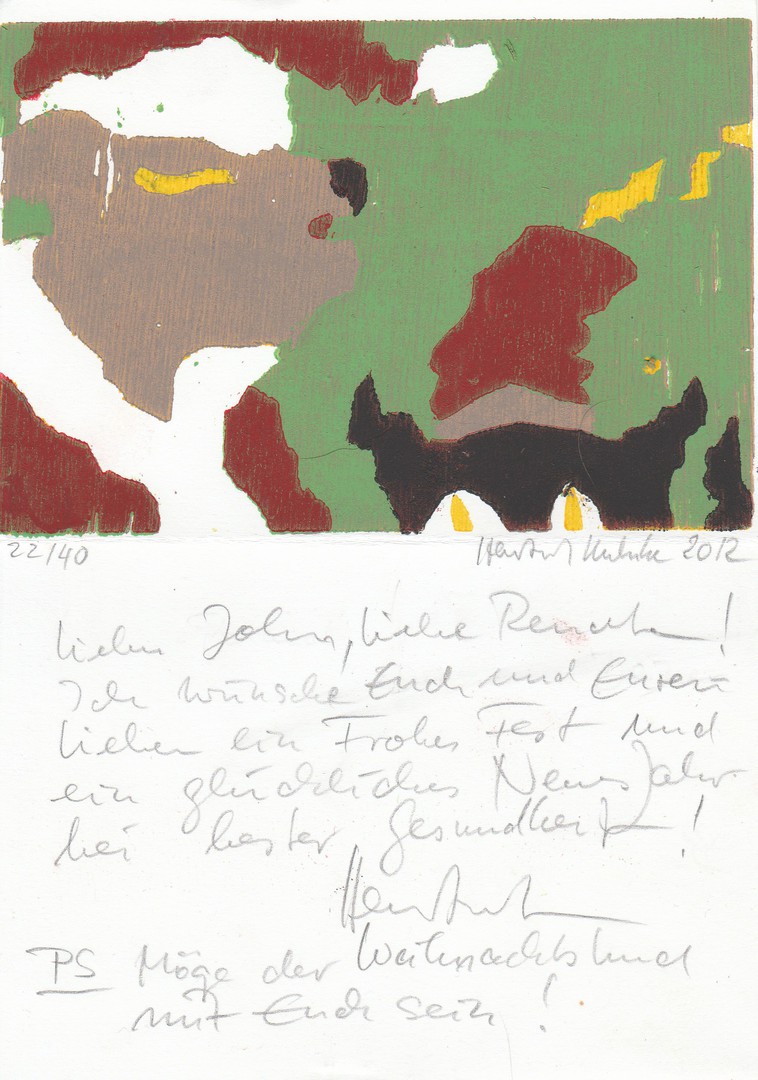 22/40
Hartmut 2012
Lieber John, liebe Renate!
Ich wünsche Euch und Euren
Lieben ein Frohes Fest und
ein glückliches Neues Jahr
bei bester Gesundheit!
Hartmut
PS Möge der Weihnachtshund
mit Euch sein!